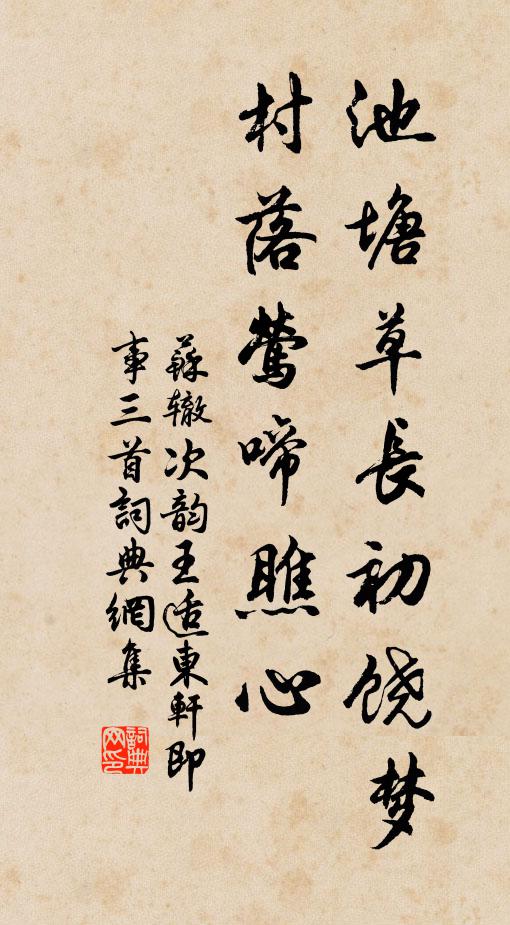 池塘草長初饶梦
村落鶯啼瞧心
蘇辙次韵王适東軒即
事三首詞典網集
詞典
网印